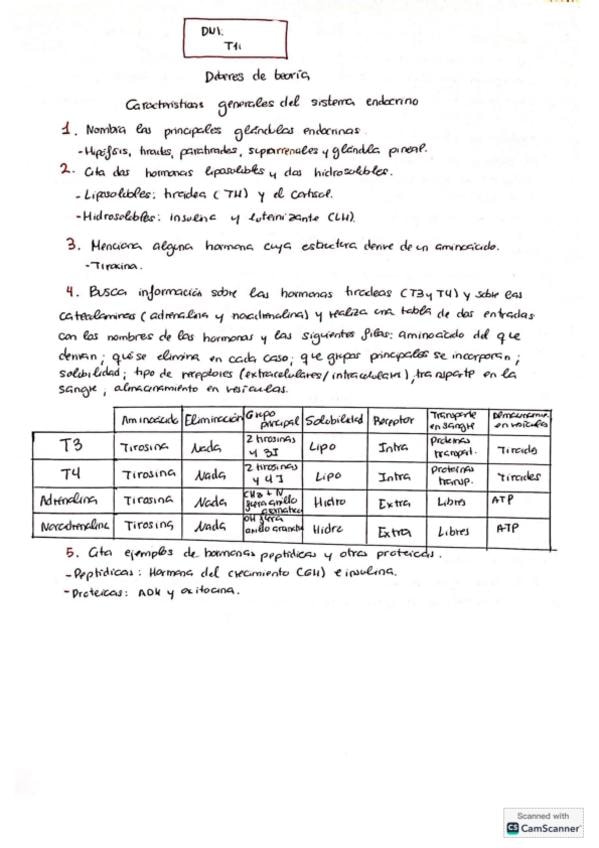 DUI:
T1:
Deberes de teoría
Características generales del sistema endocrino
1. Nombra las principales glándulas endocrinas.
-Hipófisis, tiroides, paratiroides, suprarrenales y glándula pineal.
2. Cita dos hormonas liposolubles y dos hidrosolubles.
-Liposolubles: tiroidea (TH) y el cortisol.
-Hidrosolubles: insulina y luteinizante (LH).
3. Menciona alguna hormona cuya estructura derive de un aminoácido.
-Tiroxina.
4. Busca información sobre las hormonas tiroideas (T3 y T4) y sobre las
catecolaminas (adrenalina y noradrenalina) y realiza una tabla de dos entradas
con los nombres de las hormonas y las siguientes filas: aminoácido del que
derivan; qué se elimina en cada caso; que grupos principales se incorporan;
solubilidad; tipo de receptores (extracelulares/intracelulares), transporte en la
sangre, almacenamiento en vesículas.
Aminoácido Eliminación Grupo principal Solubilidad Receptor Transporte en sangre Almacenamiento en vesículas
T3 Tirosina Nada 2 tirosinas y 3I Lipo Intra proteínas transport. Tiroides
T4 Tirosina Nada 2 tirosinas y 4I Lipo Intra proteínas transp. Tiroides
Adrenalina Tirosina Nada CH3 + N anillo aromático Hidro Extra Libres ATP
Noradrenalina Tirosina Nada OH anillo Hidro Extra Libres ATP
5. Cita ejemplos de hormonas peptídicas y otras proteicas.
-Peptídicas: Hormona del crecimiento (GH) e insulina.
-Proteicas: ADH y oxitocina.
Scanned with
CS CamScanner